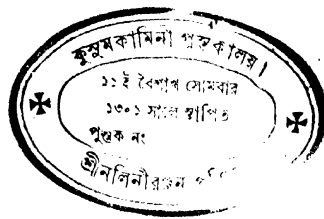 কুসুমকামিনী পুস্তকালয়।
১১ই বৈশাখ সোমবার
১৩০১ সালে স্থাপিত
পুস্তক নং
শ্রীনলিনীরঞ্জন